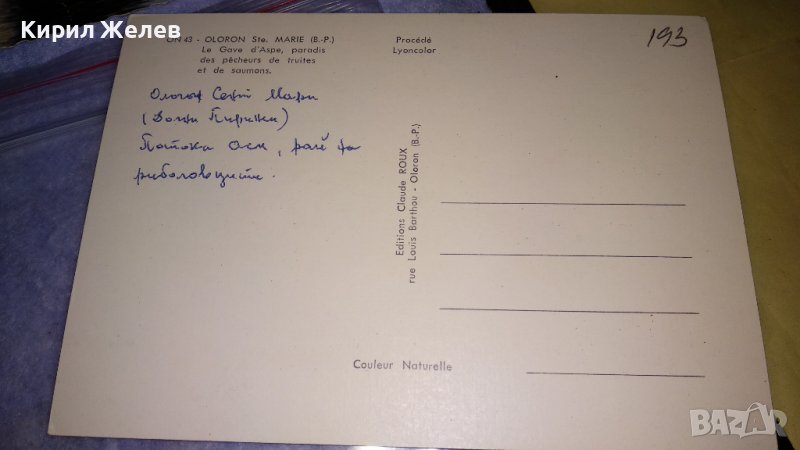 Кирил Желев
ON 43 - OLORON Ste. MARIE (B.-P.)
Le Gave d'Aspe, paradis
des pêcheurs de truites
et de saumons.
Procédé
Lyoncolor
193
Олорон Сент Мари
(Долни Пиринеи)
Потока Асп, рай за
риболовците.
Editions Claude ROUX
rue Louis Barthou - Oloron (B.-P.)
Couleur Naturelle
BAZAR